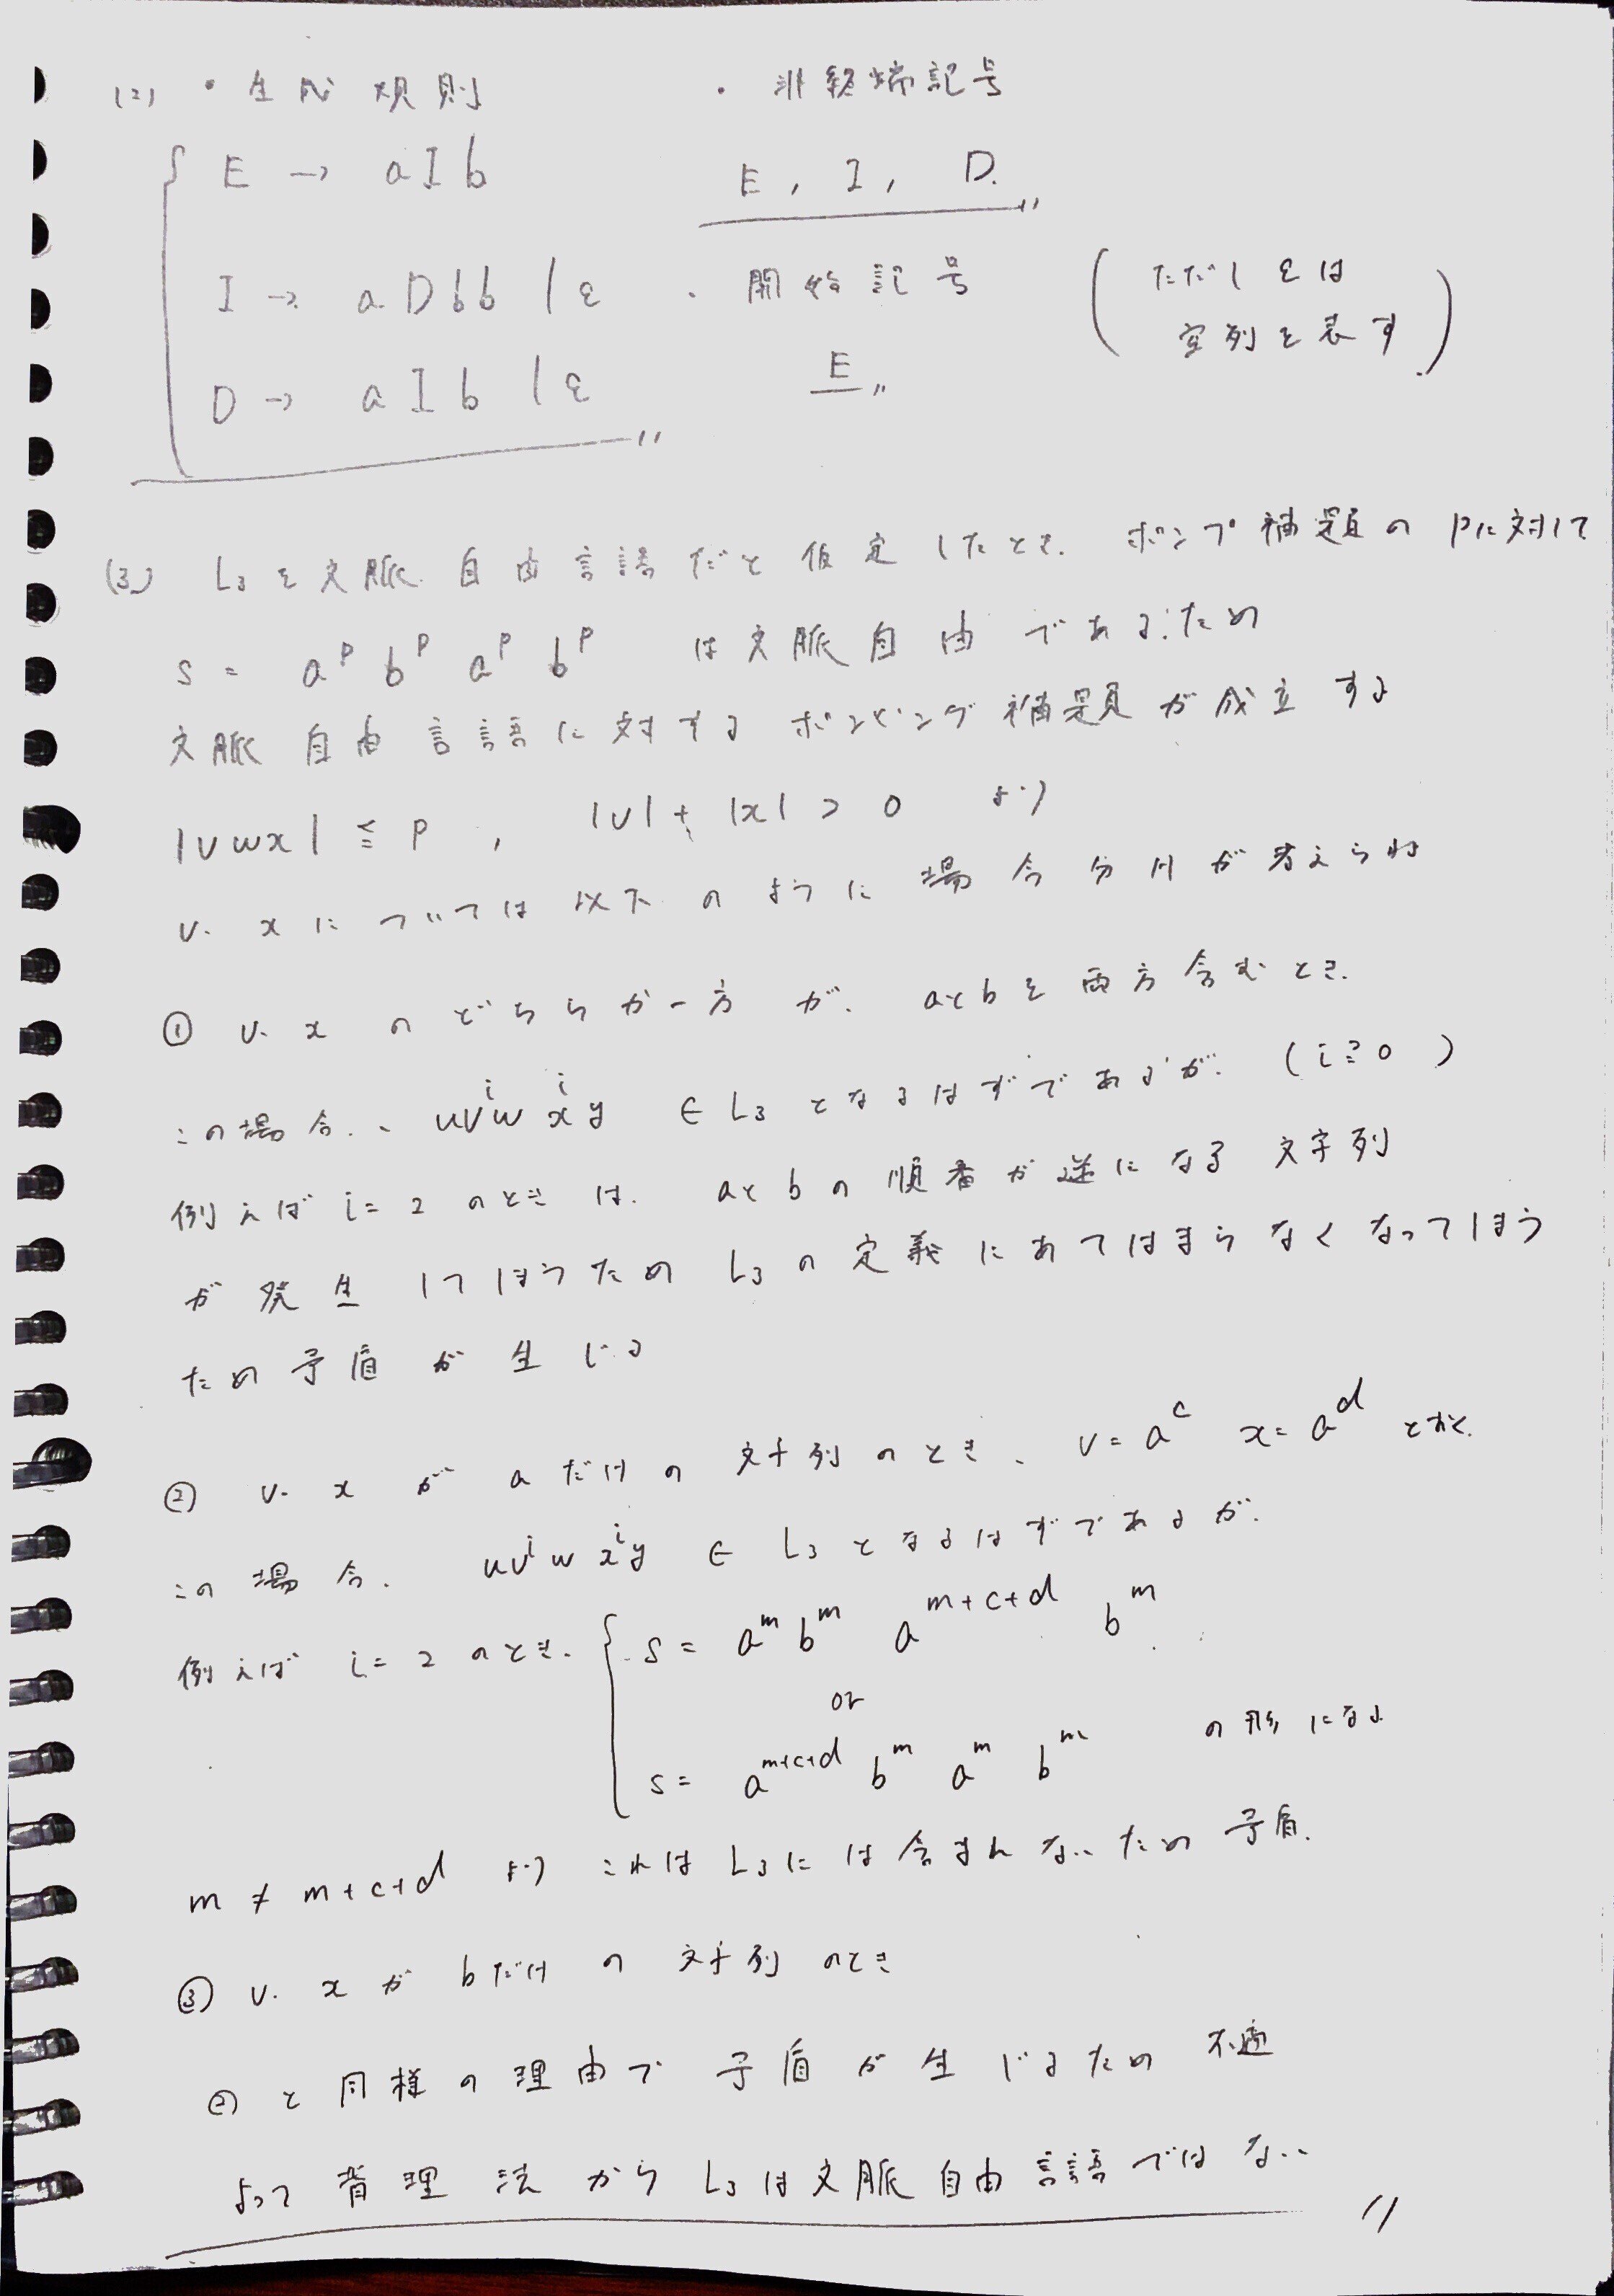 (2) ・生成規則 ・非終端記号
E → aIb E, I, D.
I → aDbb | ε ・開始記号 (ただしεは
空列を表す)
D → aIb | ε E
(3) L₃を文脈自由言語だと仮定したとき. ポンプ補題のpに対して
s = a^p b^p a^p b^p は文脈自由であるため
文脈自由言語に対するポンピング補題が成立する
|vwx| ≦ p , |v| + |x| > 0 より
v. xについては以下のように場合分けが考えられ
① v. xのどちらか一方が. aとbを両方含むとき.
この場合.、uv^i w x^i y ∈ L₃となるはずであるが. (i≧0)
例えばi=2のときは. aとbの順番が逆になる文字列
が発生してしまうためL₃の定義にあてはまらなくなってしまう
ため矛盾が生じる
② v. xがaだけの文字列のとき、v = a^c x = a^d とおく.
この場合. uv^i w x^i y ∈ L₃となるはずであるが.
例えばi=2のとき. s = a^m b^m a^{m+c+d} b^m
or
s = a^{m+c+d} b^m a^m b^m の形になる
m ≠ m+c+d より これはL₃には含まれないため矛盾.
③ v. xがbだけの文字列のとき
②と同様の理由で矛盾が生じるため不適
よって背理法からL₃は文脈自由言語ではない